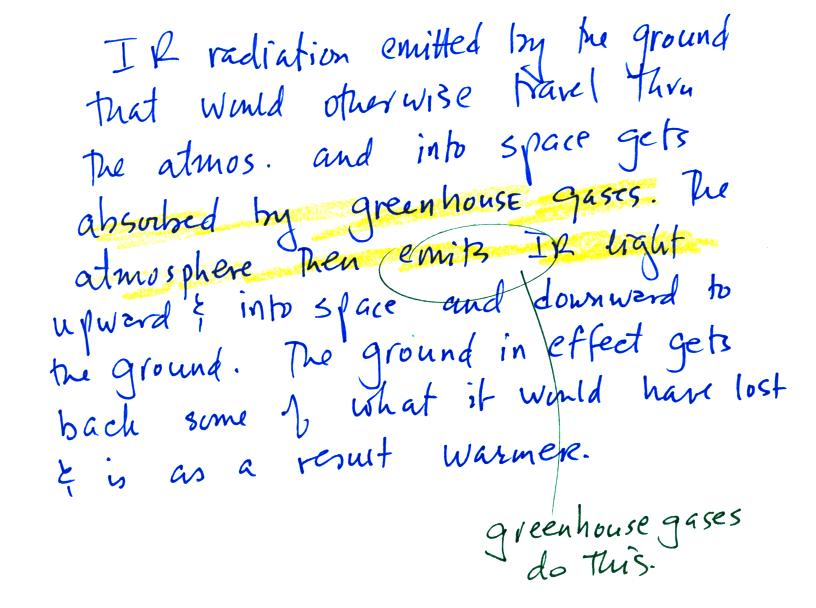 IR radiation emitted by the ground
that would otherwise travel thru
the atmos. and into space gets
absorbed by greenhouse gases. The
atmosphere then emits IR light
upward & into space and downward to
the ground. The ground in effect gets
back some of what it would have lost
& is as a result warmer.
greenhouse gases
do this.